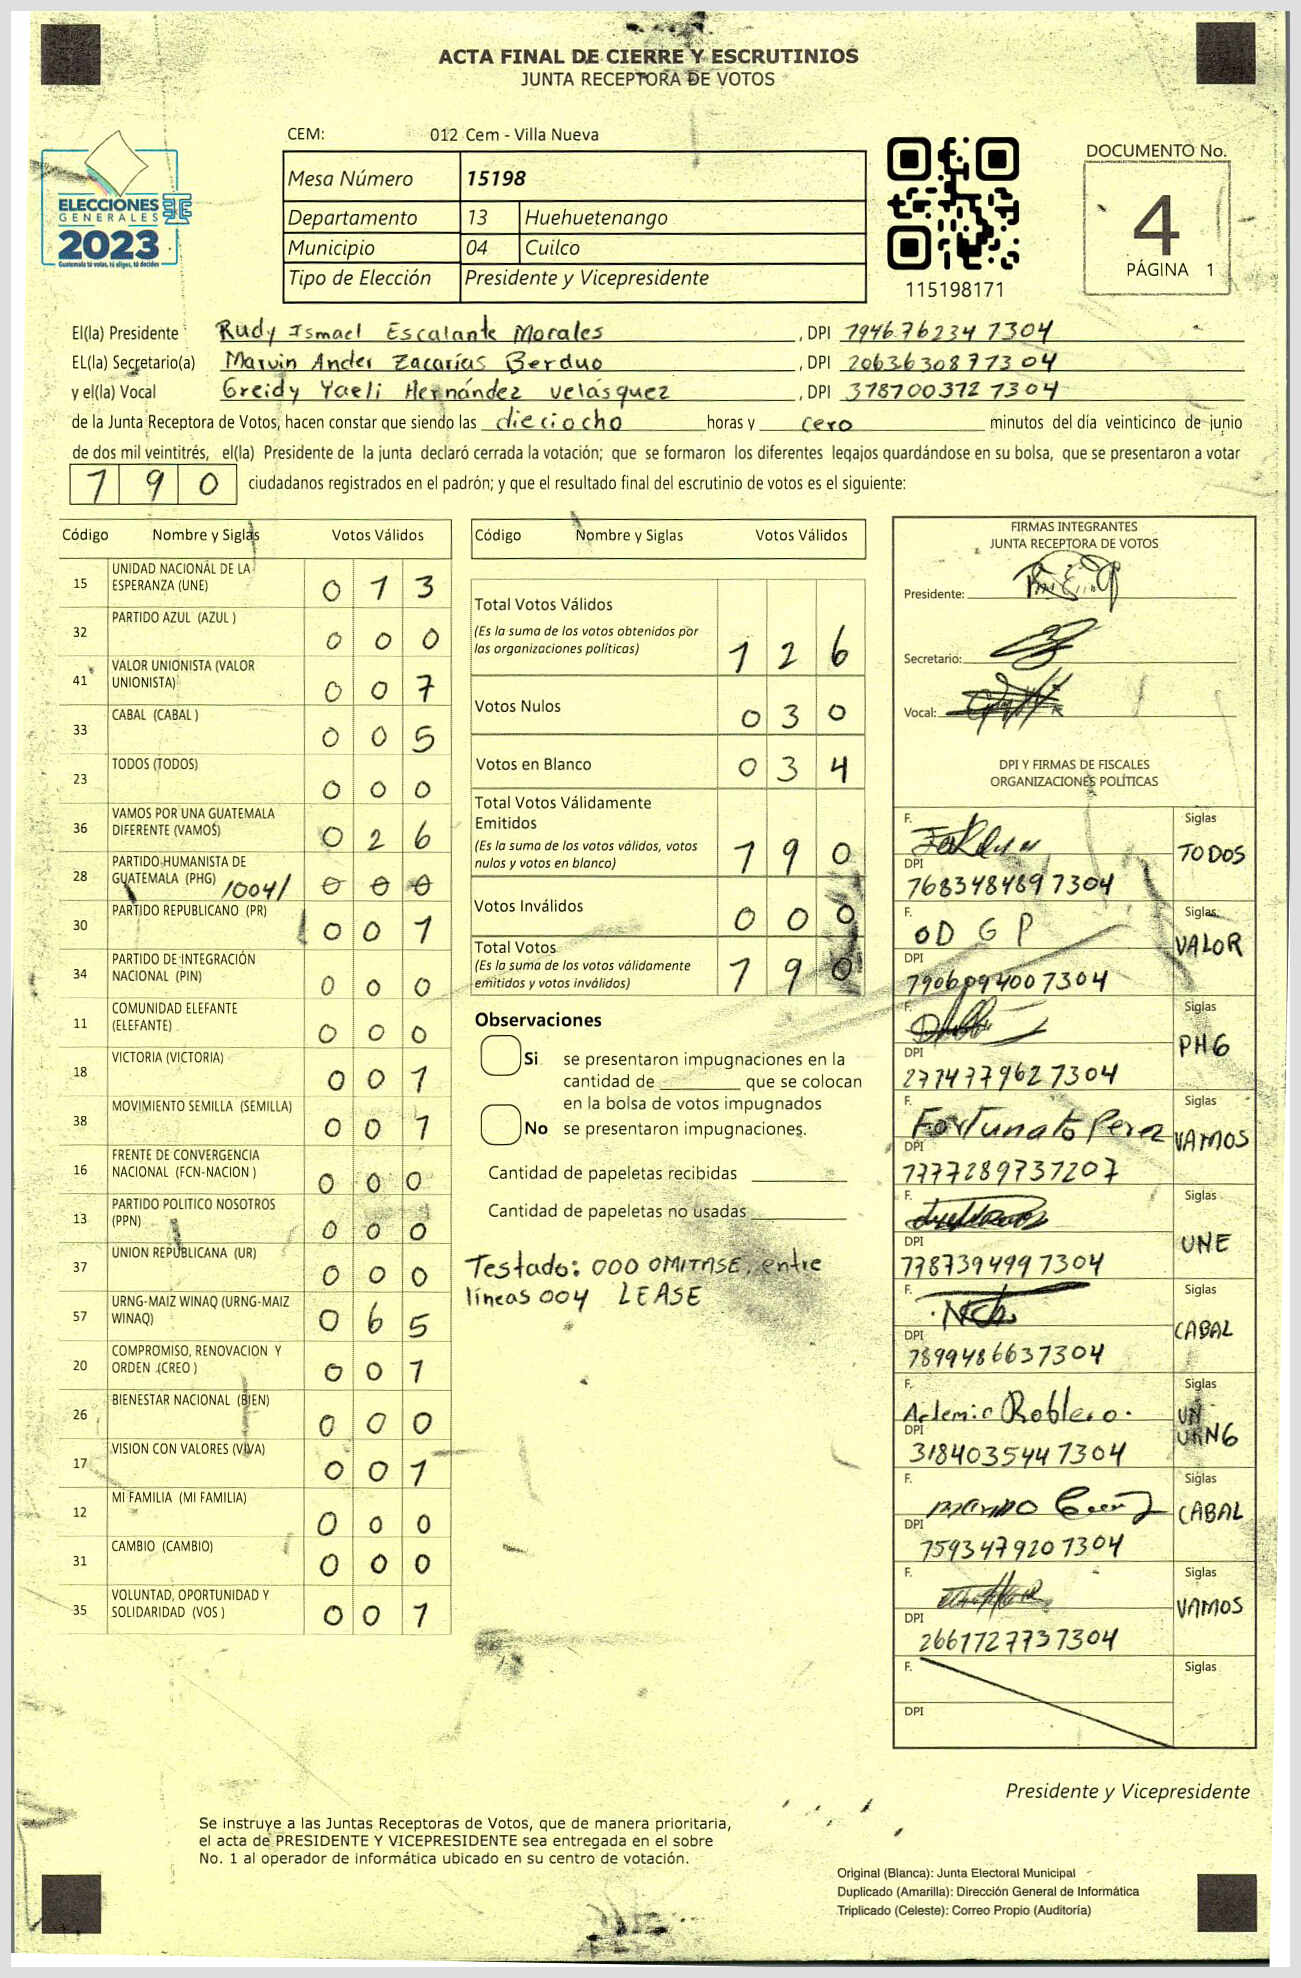 ACTA FINAL DE CIERRE Y ESCRUTINIOS
JUNTA RECEPTORA DE VOTOS
CEM: 012 Cem - Villa Nueva
Mesa Número 15198
Departamento 13 Huehuetenango
Municipio 04 Cuilco
Tipo de Elección Presidente y Vicepresidente
ELECCIONES
GENERALES
2023
Guatemala tú votas, tú eliges, tú decides
115198171
DOCUMENTO No.
4
PÁGINA 1
El(la) Presidente Rudy Ismael Escalante Morales, DPI 1946762347304
EL(la) Secretario(a) Marvin Ander Zacarías Berduo, DPI 2063630877304
y el(la) Vocal Greidy Yaeli Hernández Velásquez, DPI 3787003727304
de la Junta Receptora de Votos, hacen constar que siendo las dieciocho horas y cero minutos del día veinticinco de junio
de dos mil veintitrés, el(la) Presidente de la junta declaró cerrada la votación; que se formaron los diferentes legajos guardándose en su bolsa, que se presentaron a votar
190 ciudadanos registrados en el padrón; y que el resultado final del escrutinio de votos es el siguiente:
Código Nombre y Siglas Votos Válidos
15 UNIDAD NACIONAL DE LA ESPERANZA (UNE) 0 1 3
32 PARTIDO AZUL (AZUL ) 0 0 0
41 VALOR UNIONISTA (VALOR UNIONISTA) 0 0 7
33 CABAL (CABAL ) 0 0 5
23 TODOS (TODOS) 0 0 0
36 VAMOS POR UNA GUATEMALA DIFERENTE (VAMOS) 0 2 6
28 PARTIDO HUMANISTA DE GUATEMALA (PHG) /004/ 0 0 0
30 PARTIDO REPUBLICANO (PR) 0 0 1
34 PARTIDO DE INTEGRACIÓN NACIONAL (PIN) 0 0 0
11 COMUNIDAD ELEFANTE (ELEFANTE) 0 0 0
18 VICTORIA (VICTORIA) 0 0 1
38 MOVIMIENTO SEMILLA (SEMILLA) 0 0 1
16 FRENTE DE CONVERGENCIA NACIONAL (FCN-NACION ) 0 0 0
13 PARTIDO POLITICO NOSOTROS (PPN) 0 0 0
37 UNION REPUBLICANA (UR) 0 0 0
57 URNG-MAIZ WINAQ (URNG-MAIZ WINAQ) 0 6 5
20 COMPROMISO, RENOVACION Y ORDEN (CREO ) 0 0 1
26 BIENESTAR NACIONAL (BIEN) 0 0 0
17 VISION CON VALORES (VIVA) 0 0 1
12 MI FAMILIA (MI FAMILIA) 0 0 0
31 CAMBIO (CAMBIO) 0 0 0
35 VOLUNTAD, OPORTUNIDAD Y SOLIDARIDAD (VOS ) 0 0 1
Código Nombre y Siglas Votos Válidos
Total Votos Válidos
(Es la suma de los votos obtenidos por
las organizaciones políticas) 1 2 6
Votos Nulos 0 3 0
Votos en Blanco 0 3 4
Total Votos Válidamente
Emitidos
(Es la suma de los votos válidos, votos
nulos y votos en blanco) 1 9 0
Votos Inválidos 0 0 0
Total Votos
(Es la suma de los votos válidamente
emitidos y votos inválidos) 1 9 0
Observaciones
Si se presentaron impugnaciones en la
cantidad de ________ que se colocan
en la bolsa de votos impugnados
No se presentaron impugnaciones.
Cantidad de papeletas recibidas
Cantidad de papeletas no usadas
Testado: 000 OMITASE, entre
líneas 004 LEASE
FIRMAS INTEGRANTES
JUNTA RECEPTORA DE VOTOS
Presidente:
Secretario:
Vocal:
DPI Y FIRMAS DE FISCALES
ORGANIZACIONES POLÍTICAS
F. Siglas TODOS
DPI 7683484897304
F. OD G P Siglas VALOR
DPI 1906094007304
F. Siglas PHG
DPI 2774779627304
F. Fortunato Perez Siglas VAMOS
DPI 1777289731207
F. Siglas UNE
DPI 7787394997304
F. Siglas CABAL
DPI 1899486637304
F. Artemio Roblero. Siglas URNG
DPI 3184035447304
F. Siglas CABAL
DPI 1593479207304
F. Siglas VAMOS
DPI 2661727737304
F. Siglas
DPI
Presidente y Vicepresidente
Se instruye a las Juntas Receptoras de Votos, que de manera prioritaria,
el acta de PRESIDENTE Y VICEPRESIDENTE sea entregada en el sobre
No. 1 al operador de informática ubicado en su centro de votación.
Original (Blanca): Junta Electoral Municipal
Duplicado (Amarilla): Dirección General de Informática
Triplicado (Celeste): Correo Propio (Auditoría)